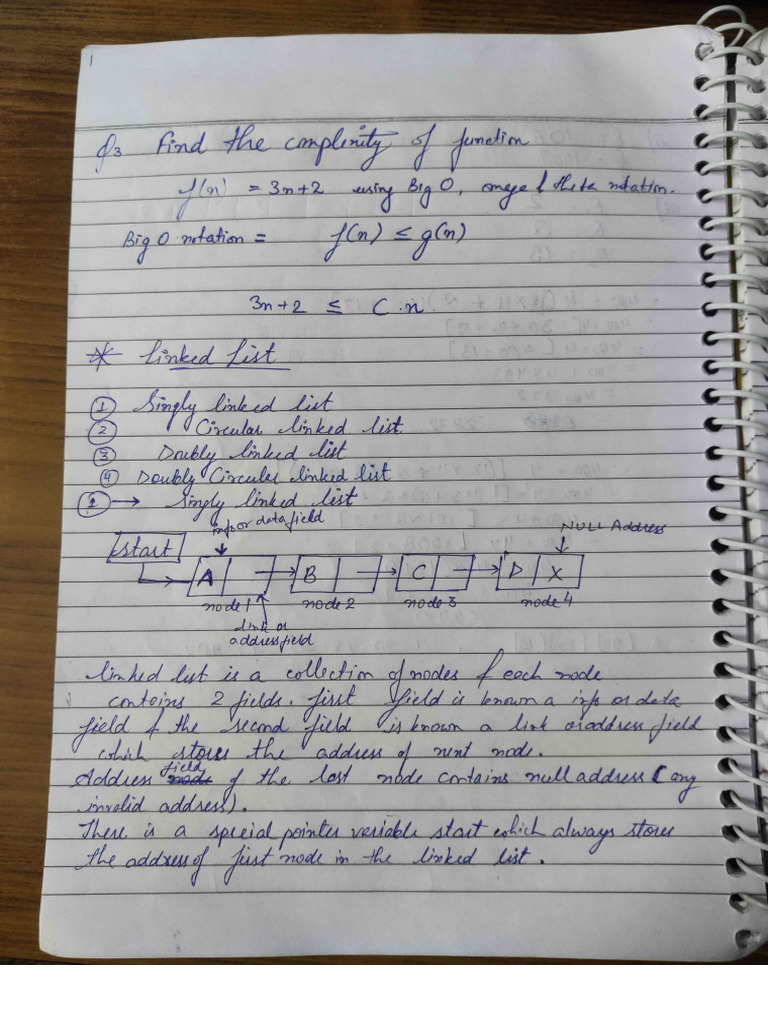 1
Q3 Find the complexity of function
f(n) = 3n+2 using Big O, omega & theta notation.
Big O notation = f(n) ≤ g(n)
3n+2 ≤ C.n
* Linked List
① Singly linked list
② Circular linked list
③ Doubly linked list
④ Doubly Circular linked list
① → Singly linked list
info or data field
NULL Address
start
A B C D X
node 1 node 2 node 3 node 4
link or
address field
linked list is a collection of nodes & each node
contains 2 fields. first field is known a info or data
field & the second field is known a link or address field
which stores the address of next node.
Address field of the last node contains null address (any
invalid address).
There is a special pointer variable start which always stores
the address of first node in the linked list.